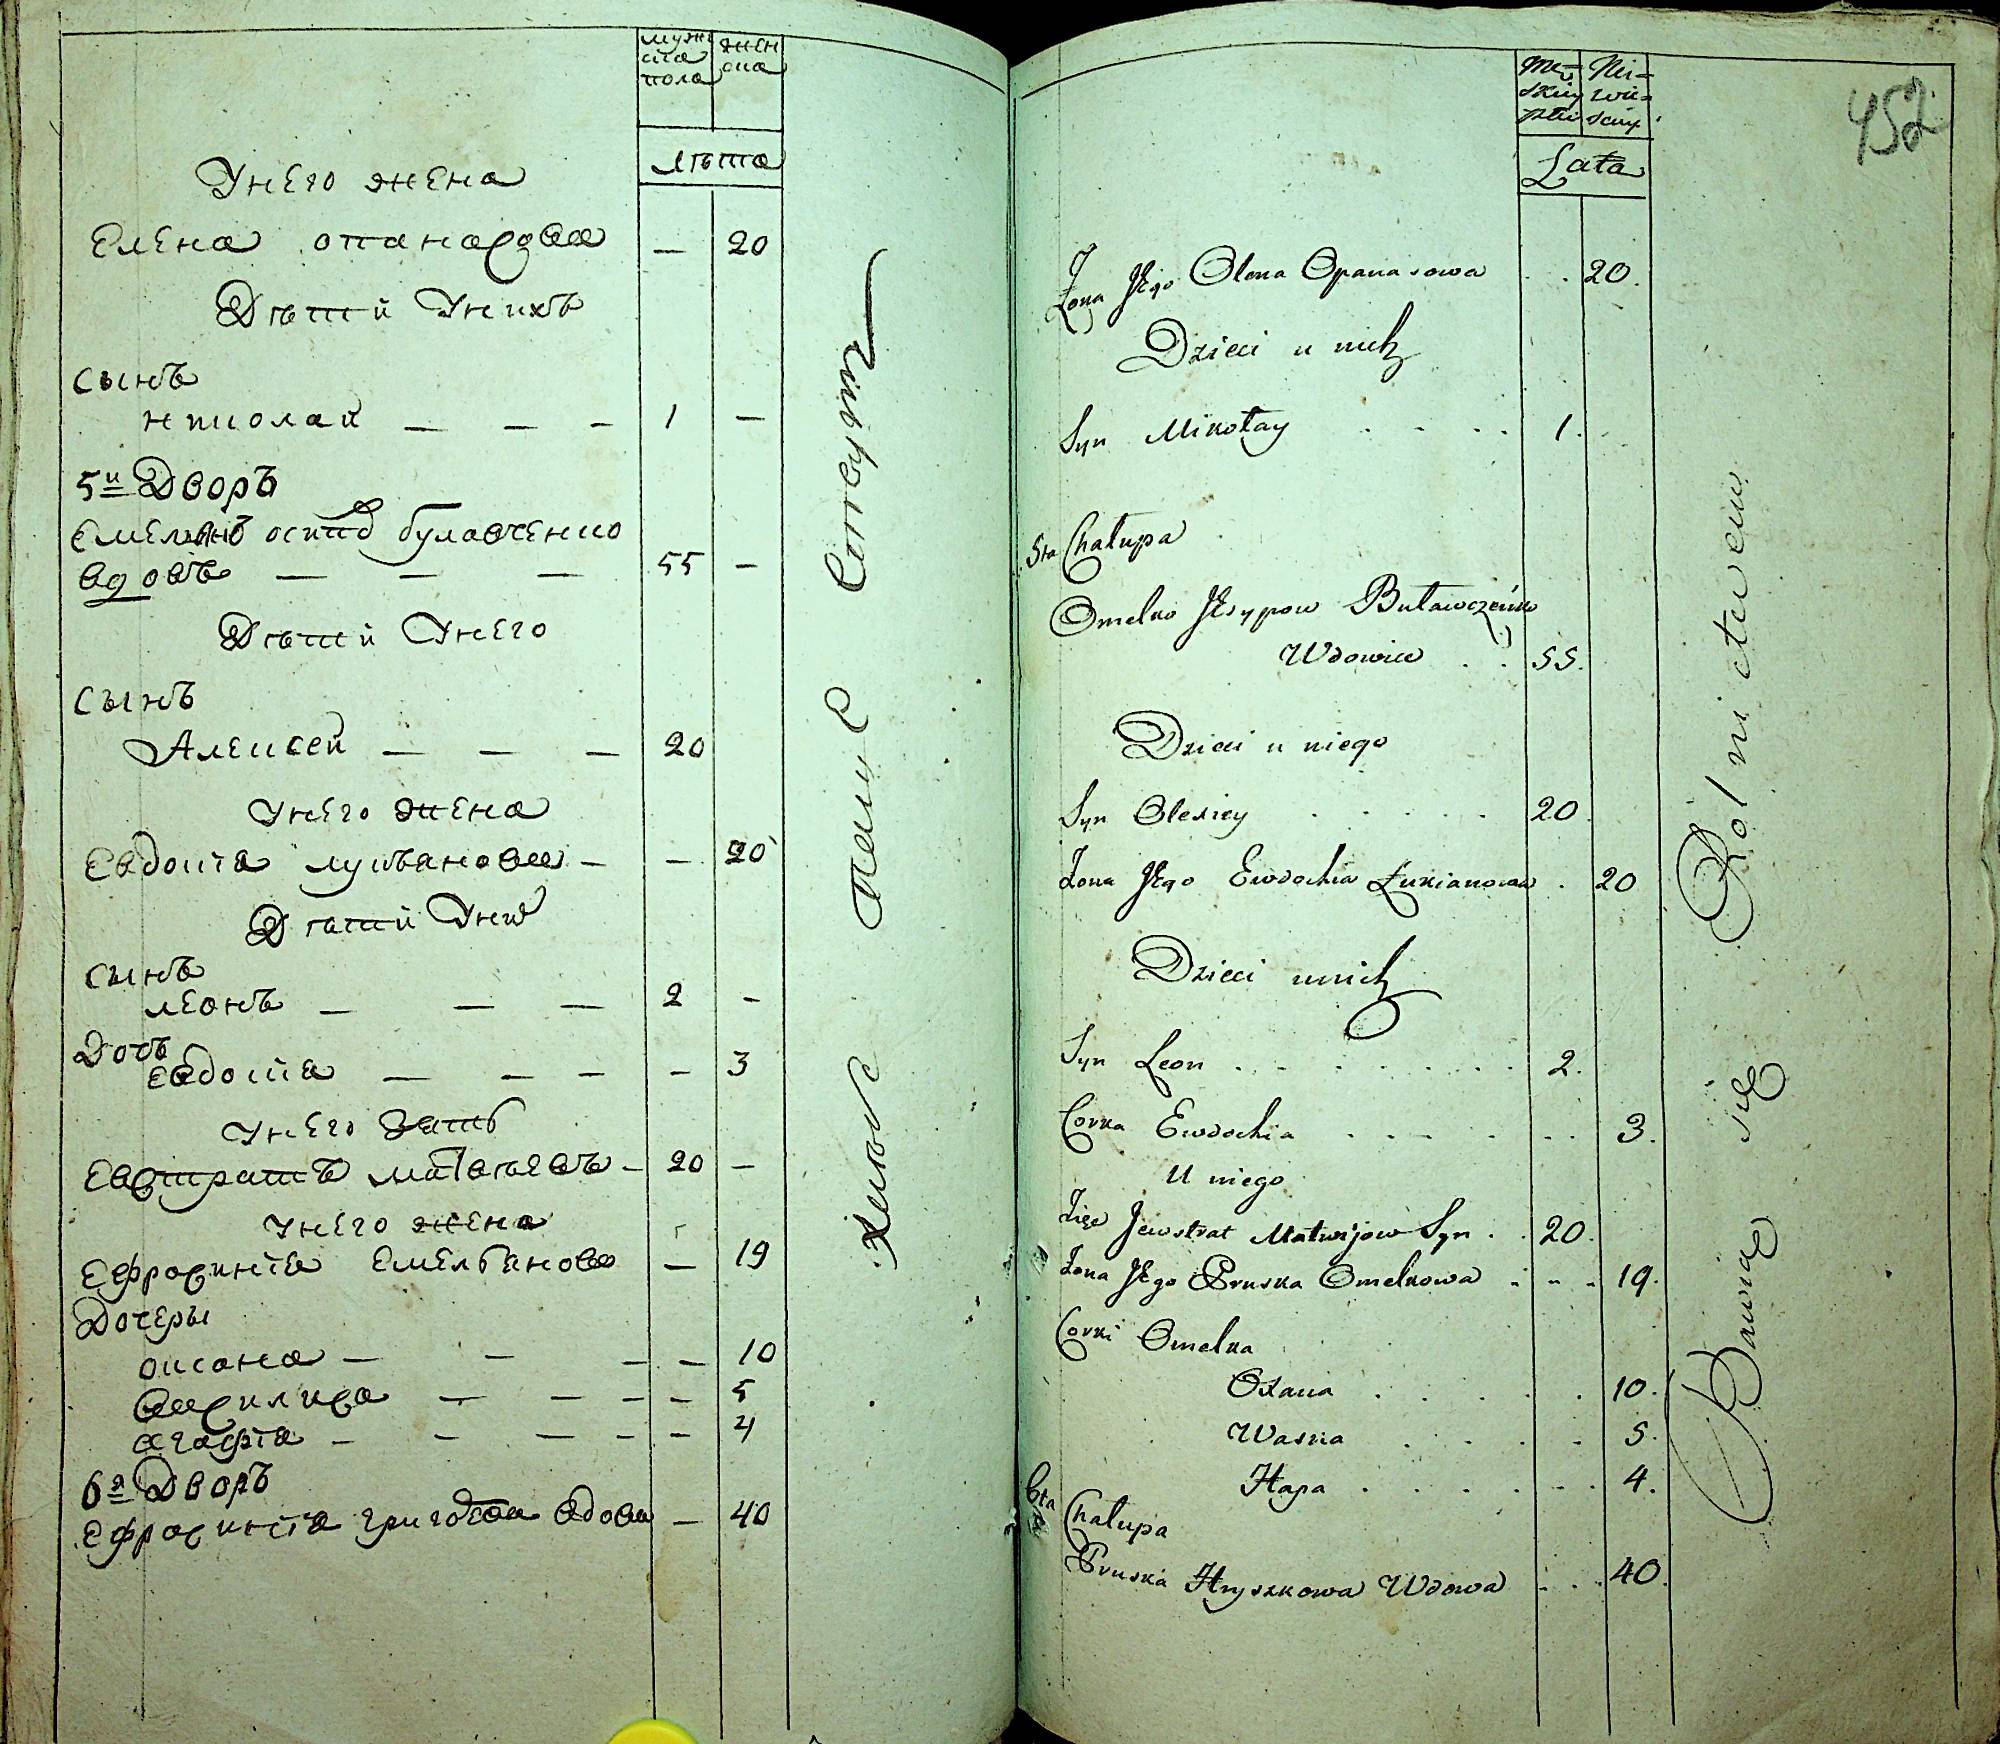 мужска пола
женска
лѣта
У него жена
Елена опанасова — 20
Дѣтей У нихъ
Сынъ
николай — — — 1 —
5й Дворъ
Емельянъ осипов булавченко
вдовъ — — — 55 —
Дѣтей У него
Сынъ
Алексей — — — 20
У него жена
Евдокія лукьянова — — 20
Дѣтей У них
Сынъ
леонъ — — — 2 —
Дочь
евдокія — — — — 3
У него Зять
Евстратъ матвѣевъ — 20 —
У него жена
Ефросинія Емельянова — 19
Дочеры
оксана — — — — 10
василиса — — — — 5
агафія — — — — — 4
6й Дворъ
Ефросинія григорова вдова — 40
Хлебо паше ством
Męskiey płci
Niewieściey
Lata
452
Żona Jego Olena Opanasowa . . 20.
Dzieci u nich
Syn Mikołay . . . . 1.
5ta Chałupa
Omelko Josypow Buławczeńko
Wdowiec . . 55.
Dzieci u niego
Syn Olexiey . . . . . 20
Żona Jego Ewdochia Łukianowa . 20
Dzieci u nich
Syn Leon . . . . . . . 2.
Corka Ewdochia . . . . . . 3.
U niego
Zięć Jewstrat Matwijow Syn . . 20.
Żona Jego Pruska Omelkowa . . . 19.
Corki Omelka
Oxana . . . . . 10.
Waska . . . . . 5.
Hapa . . . . . . 4.
6ta Chałupa
Pruska Hryszkowa Wdowa . . . 40.
Bawią się Rolnictwem